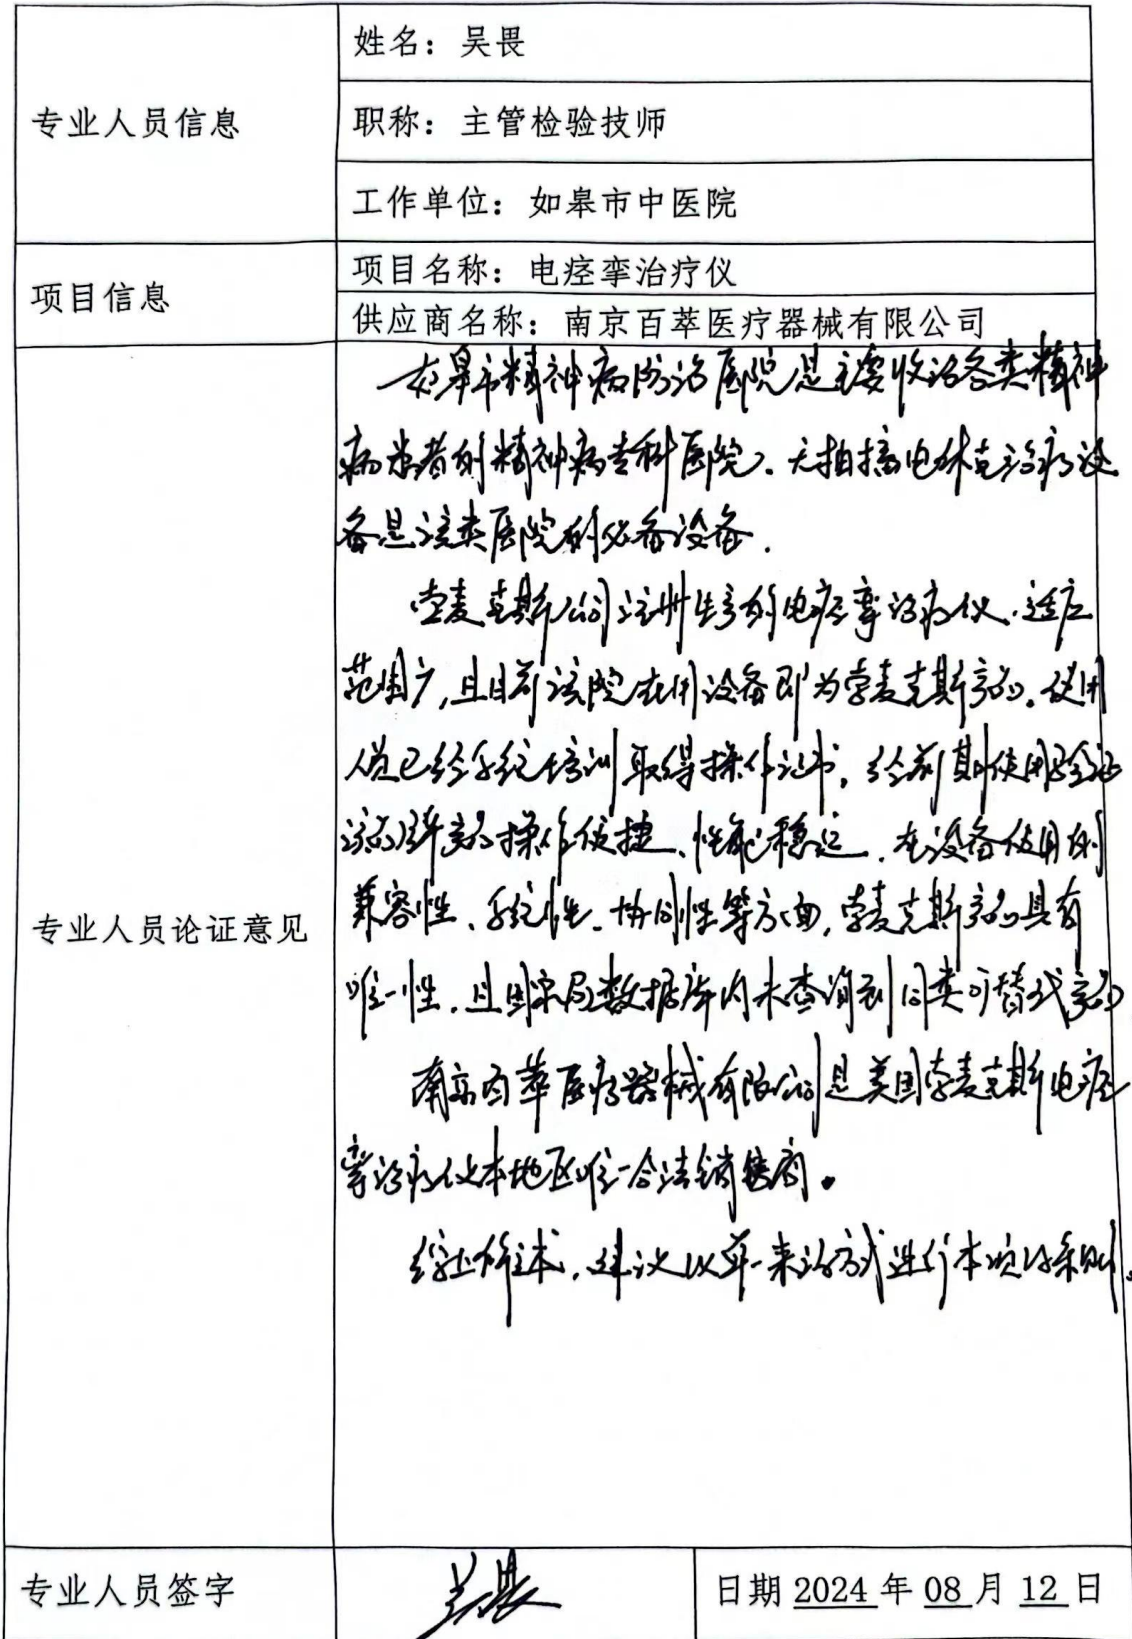 专业人员信息
姓名：吴畏
职称：主管检验技师
工作单位：如皋市中医院
项目信息
项目名称：电痉挛治疗仪
供应商名称：南京百萃医疗器械有限公司
专业人员论证意见
如皋市精神病防治医院是主要收治各类精神
病患者的精神病专科医院、无抽搐电休克治疗设
备是该类医院的必备设备．
索麦克斯公司注册生产的电痉挛治疗仪．适应
范围广，且目前该院在用设备即为索麦克斯产品。使用
人员已经系统培训取得操作证书，经前期使用验证
该品牌产品操作便捷、性能稳定．在设备使用的
兼容性、系统性、协同性等方面，索麦克斯产品具有
唯一性．且国家局数据库内未查询到同类可替代产品
南京百萃医疗器械有限公司是美国索麦克斯电痉
挛治疗仪本地区唯一合法销售商。
综上所述，建议以单一来源方式进行本项目采购。
专业人员签字
吴畏
日期 2024 年 08 月 12 日